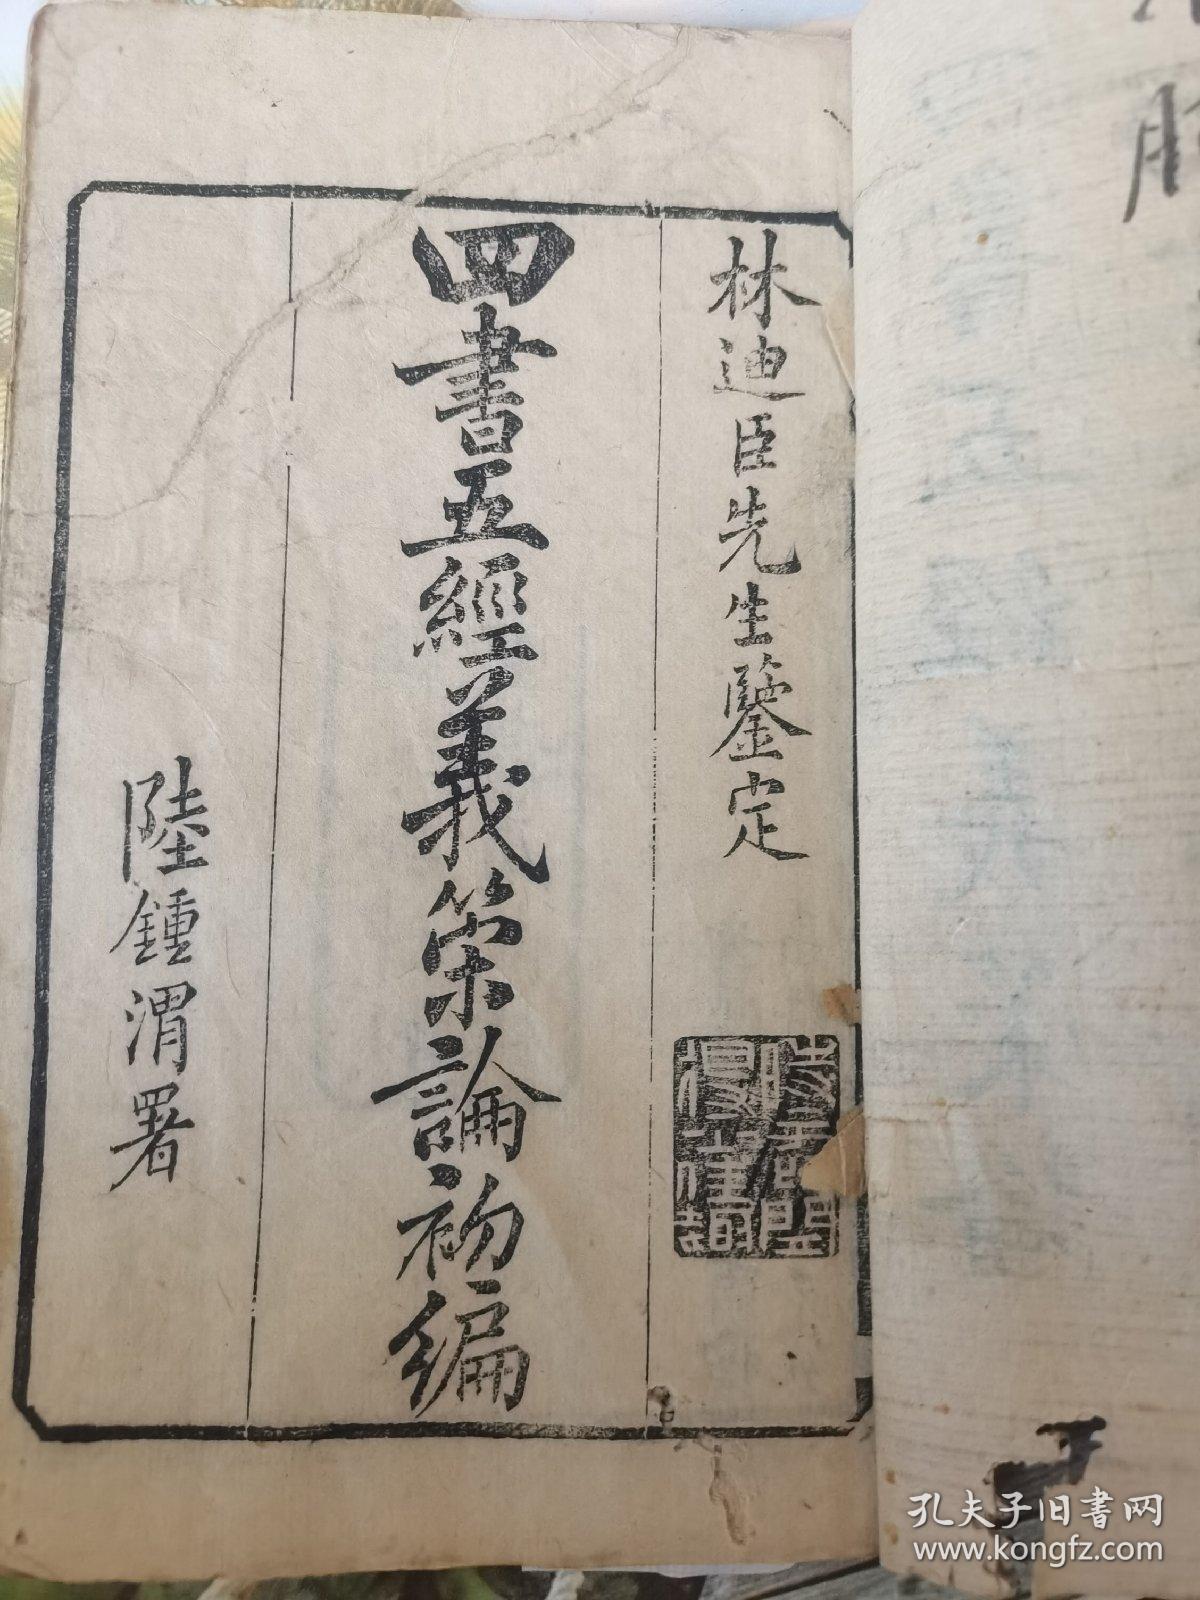 林迪臣先生鑒定
四書五經義策論初編
陸鍾渭署
孔夫子旧书网
www.kongfz.com